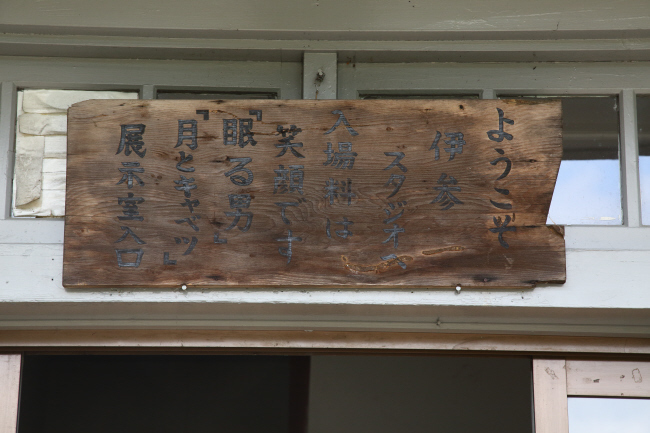 ようこそ
伊参
スタジオへ
入場料は
笑顔です
『眠る男』
『月とキャベツ』
展示室入口